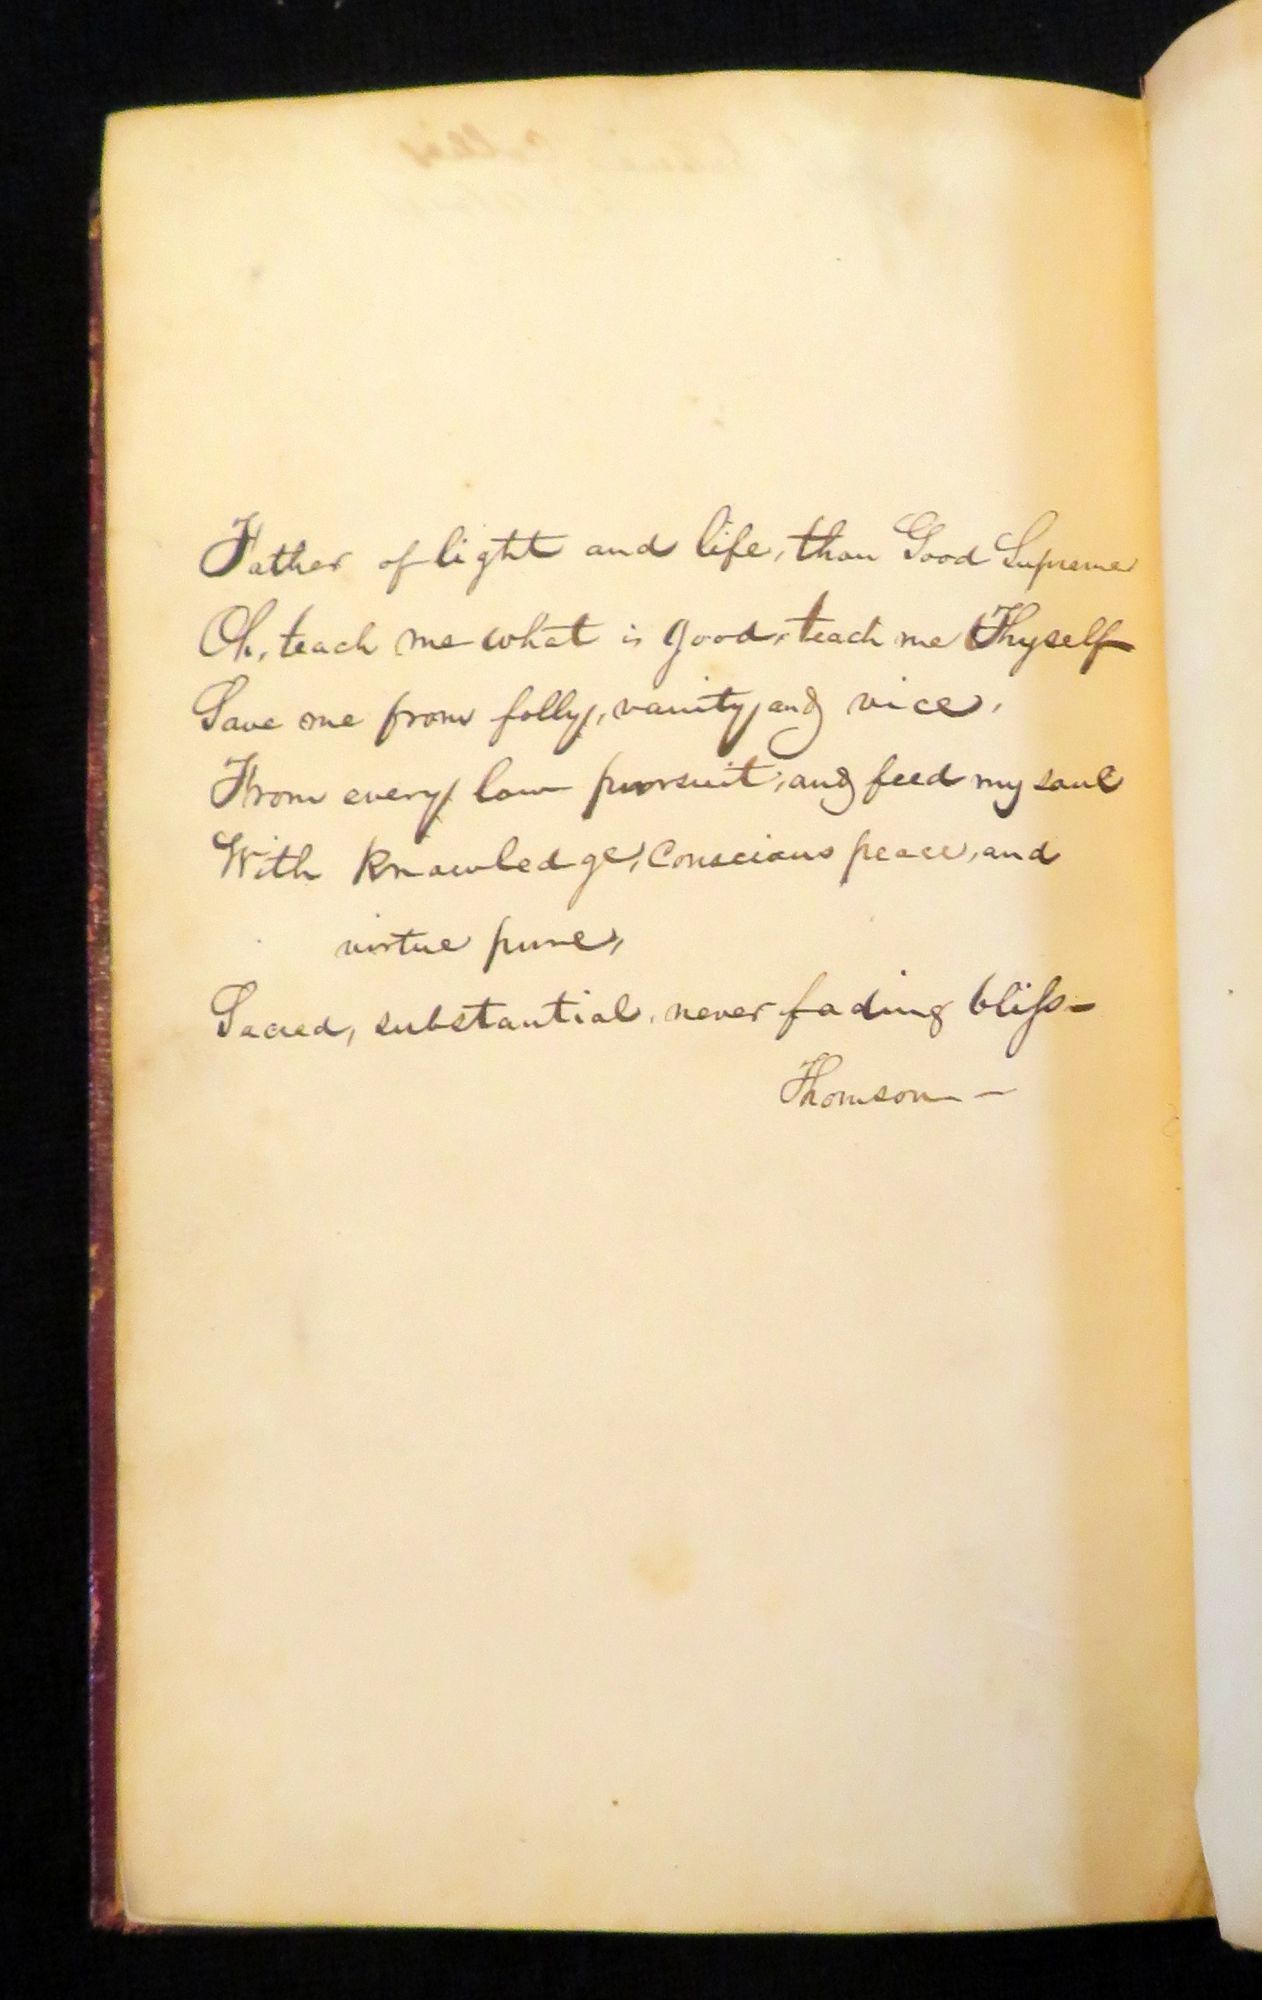 Father of light and life, thou Good Supreme
Oh, teach me what is good, teach me Thyself
Save me from folly, vanity and vice,
From every low pursuit, and feed my soul
With knowledge, conscious peace, and
virtue pure,
Sacred, substantial, never fading bliss—
Thomson—